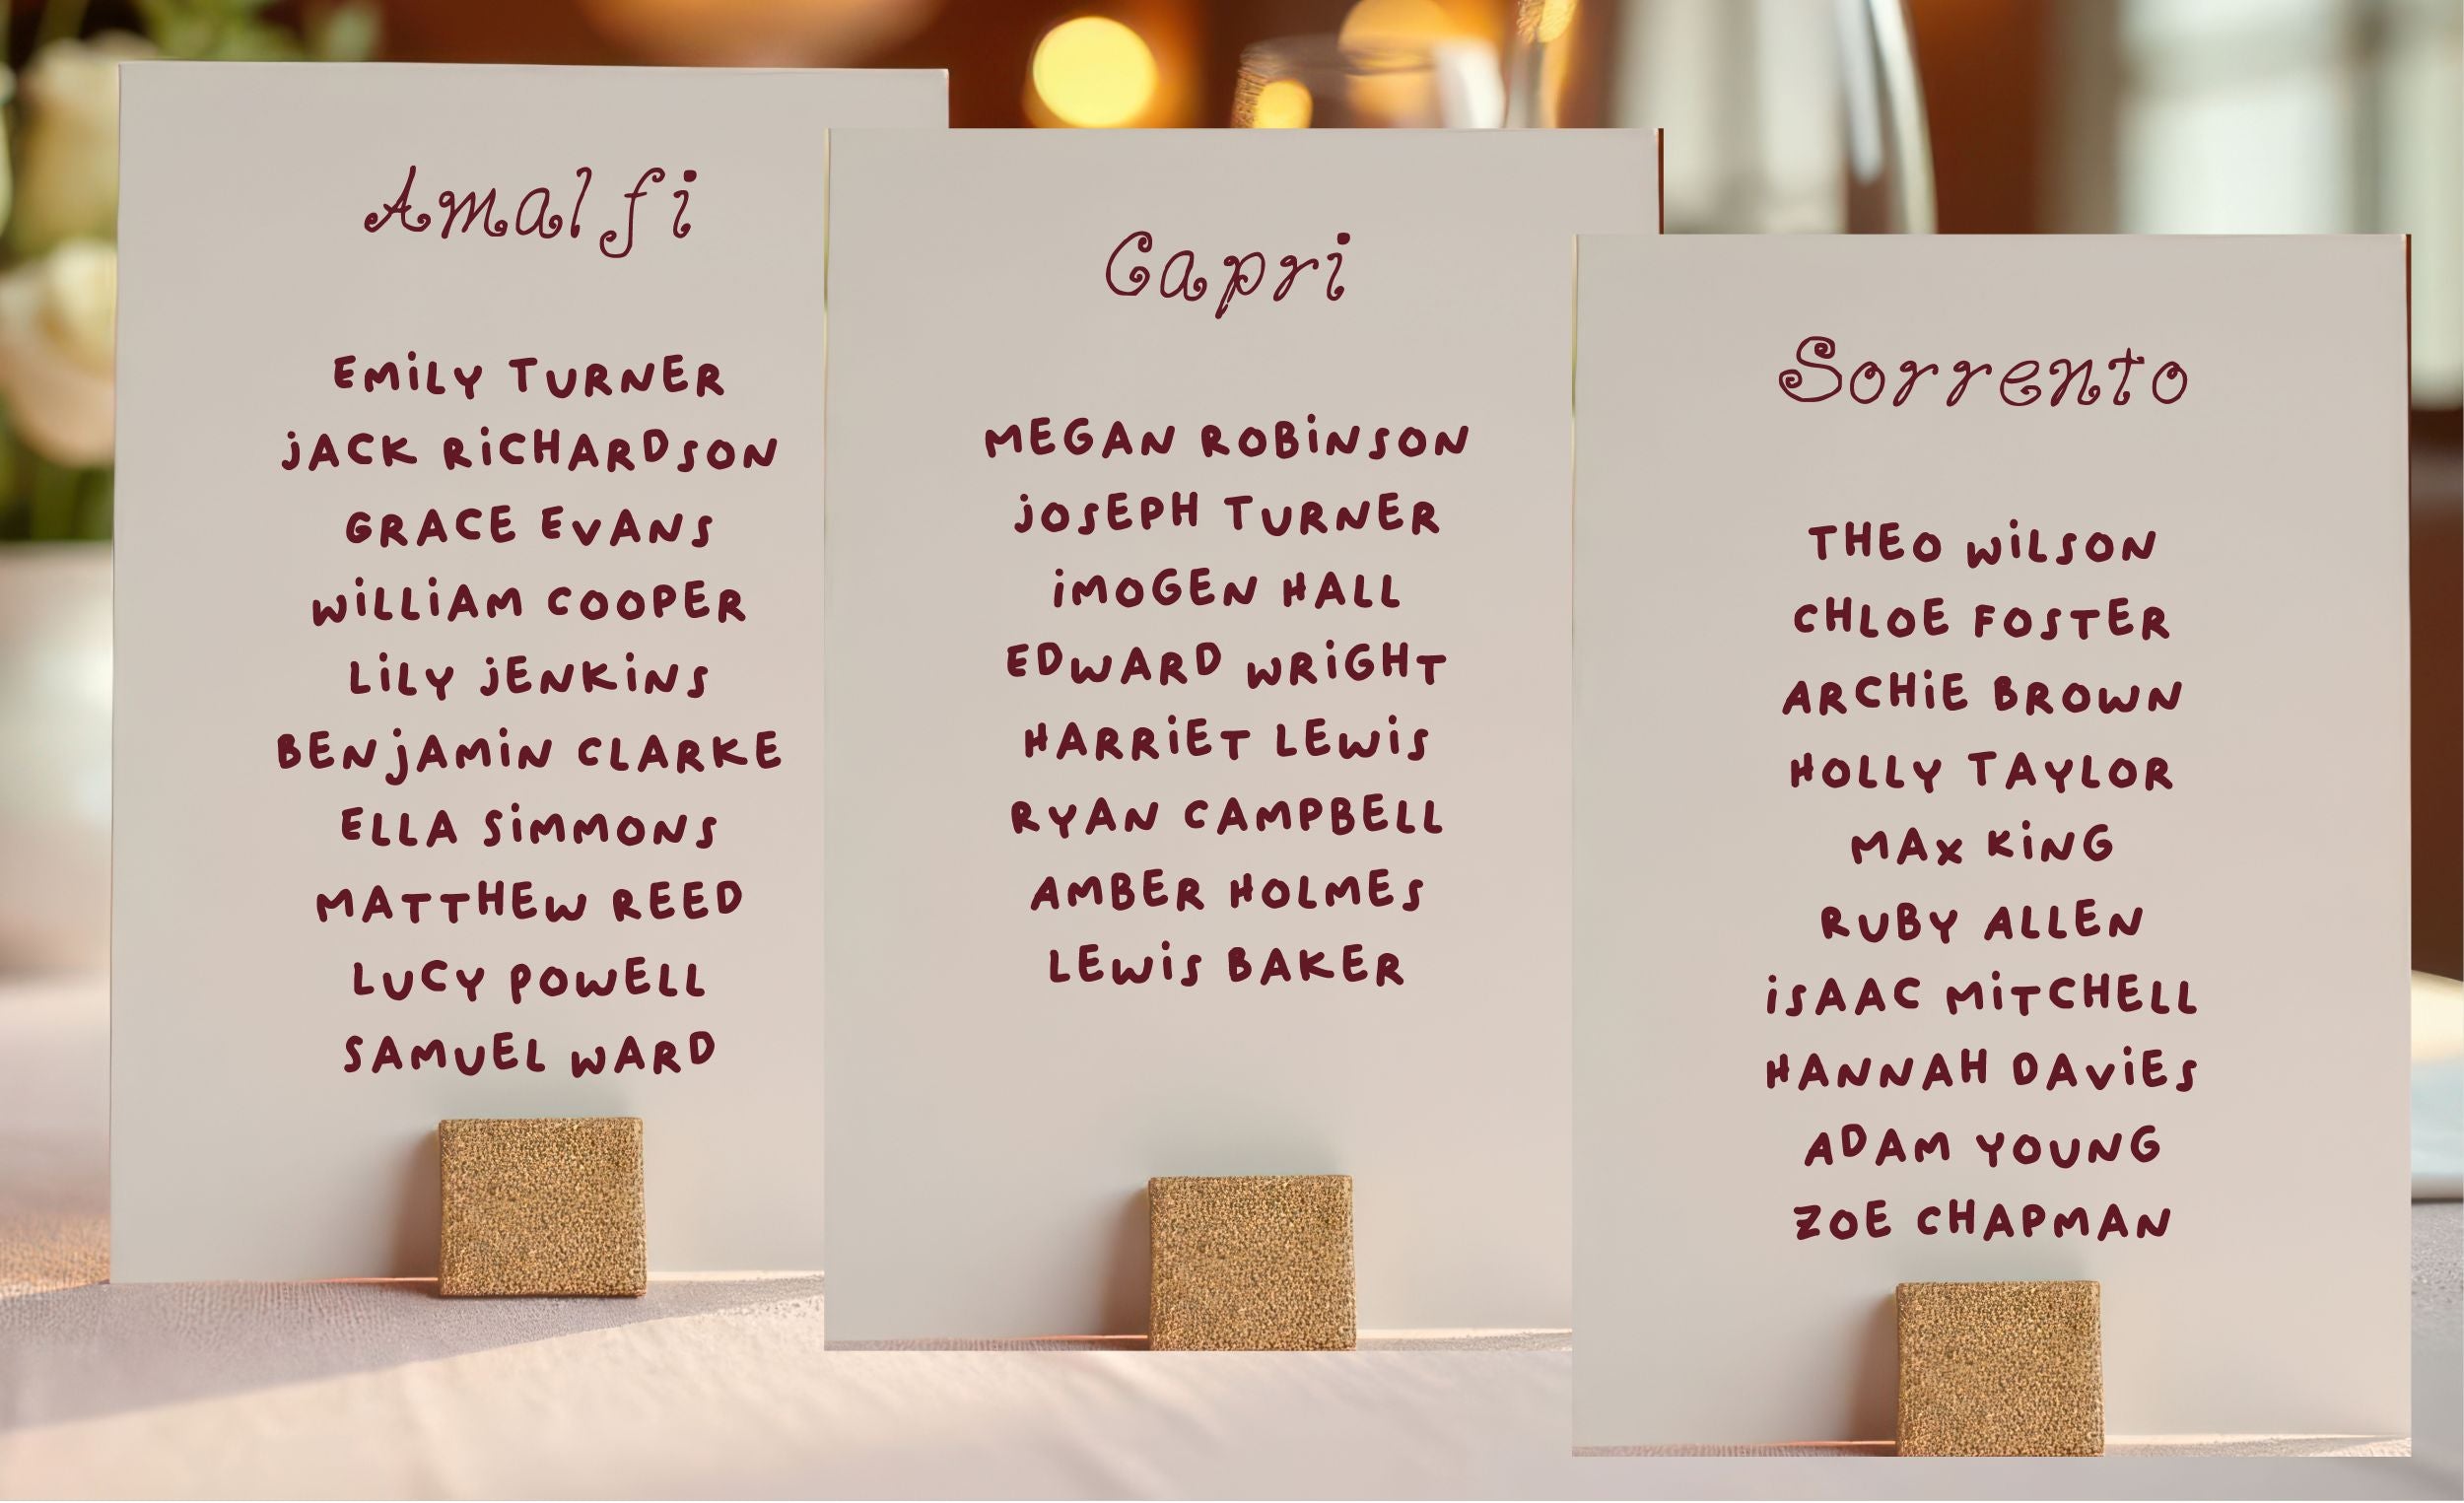 Amalfi
EMiLY TURNER
jACK RiCHARDSON
GRACE EVANS
WiLLiAM COOPER
LiLY jENKiNS
BENjAMiN CLARKE
ELLA SiMMONS
MATTHEW REED
LUCY POWELL
SAMUEL WARD
Capri
MEGAN ROBiNSON
jOSEPH TURNER
iMOGEN HALL
EDWARD WRiGHT
HARRiET LEWiS
RYAN CAMPBELL
AMBER HOLMES
LEWiS BAKER
Sorrento
THEO WiLSON
CHLOE FOSTER
ARCHiE BROWN
HOLLY TAYLOR
MAX KiNG
RUBY ALLEN
iSAAC MiTCHELL
HANNAH DAViES
ADAM YOUNG
ZOE CHAPMAN